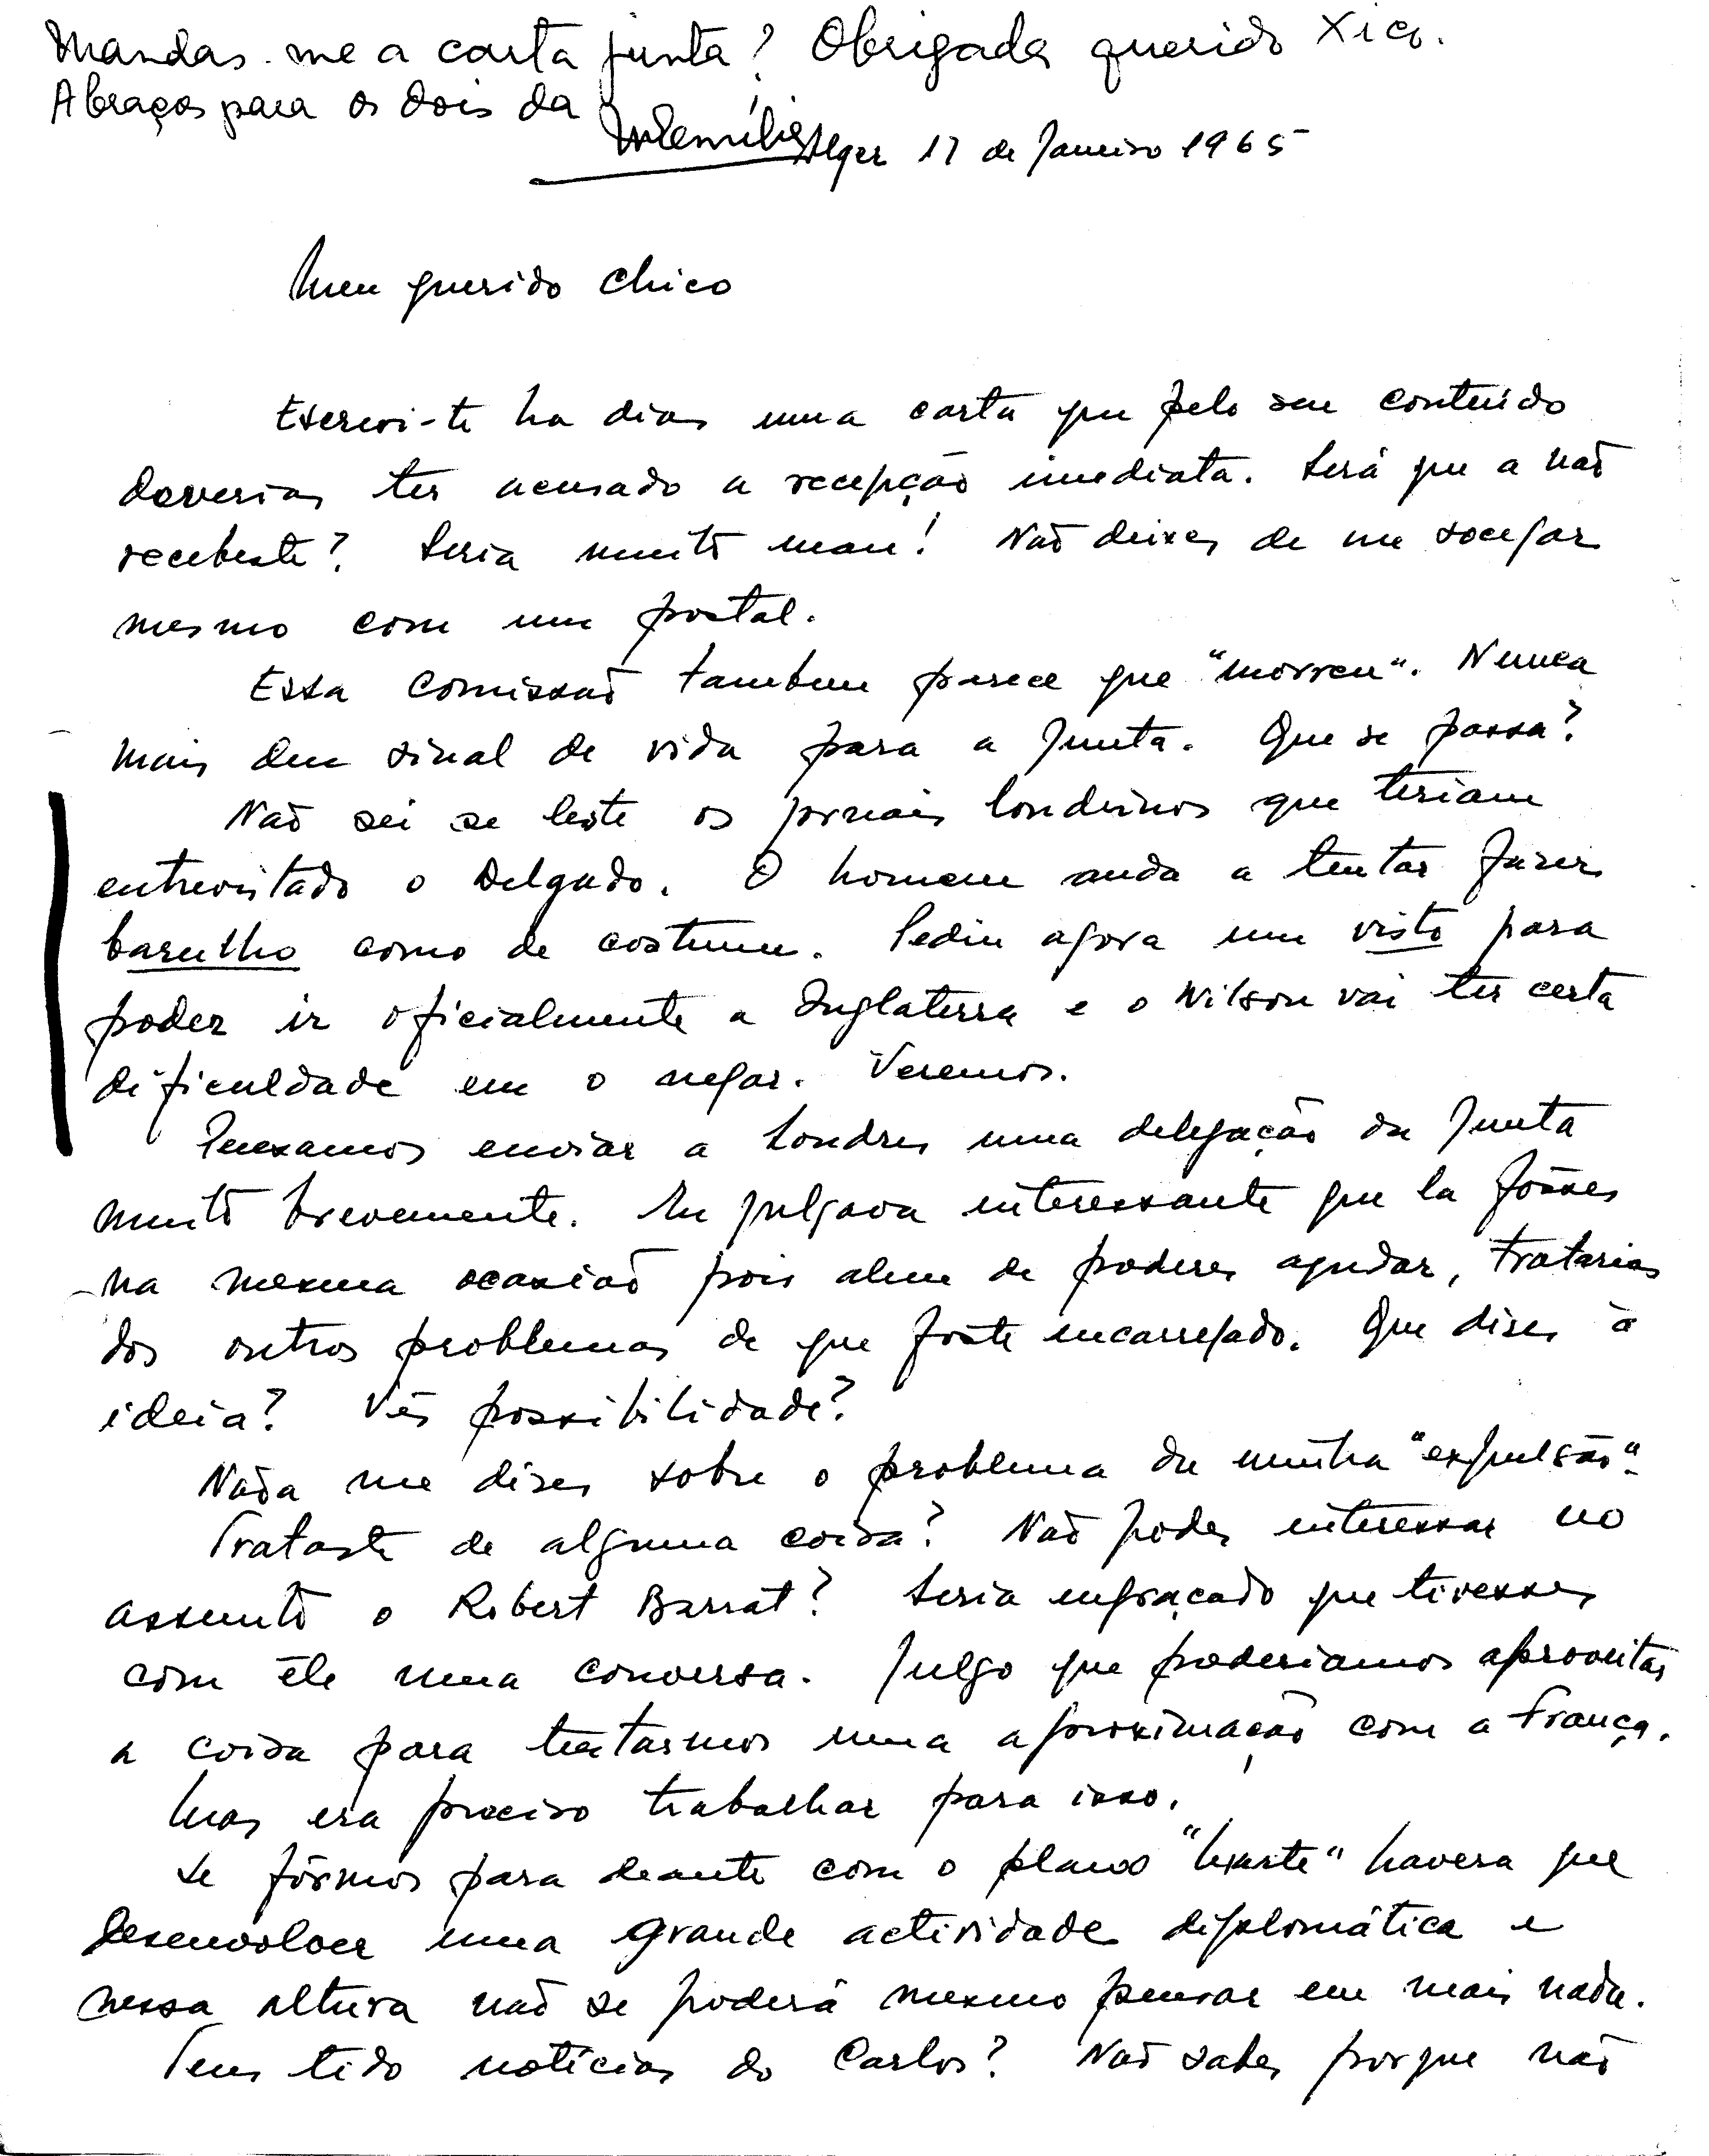 Mandas-me a carta junta? Obrigada querido Xico.
Abraços para os dois da
Mémilia
Alger 17 de Janeiro 1965
Meu querido Chico
Escrevi-te ha dias uma carta que pelo seu conteúdo
deverias ter acusado a recepção imediata. Será que a não
recebeste? Seria muito mau! Não deixes de me socegar
mesmo com um postal.
Essa Comissão tambem parece que "morreu". Nunca
mais deu sinal de vida para a Junta. Que se passa?
Não sei se leste os jornais londrinos que teriam
entrevistado o Delgado. O homem anda a tentar fazer
barulho como de costume. Pediu agora um visto para
poder ir oficialmente a Inglaterra e o Wilson vai ter certa
dificuldade em o negar. Veremos.
Pensamos enviar a Londres uma delegação da Junta
muito brevemente. Eu julgava interessante que la fôsses
na mesma ocasião pois alem de poderes ajudar, tratarias
dos outros problemas de que foste encarregado. Que dizes à
ideia? Vês possibilidade?
Nada me dizes sobre o problema da minha "expulsão".
Trataste de alguma coisa? Não podes interessar no
assunto o Robert Barrat? Seria engraçado que tivesses
com êle uma conversa. Julgo que poderiamos aproveitar
a coisa para tentarmos uma aproximação com a França.
Mas era preciso trabalhar para isso.
Se fôrmos para deante com o plano havera que
desenvolver uma grande actividade diplomática e
nessa altura não se poderá mesmo pensar em mais nada.
Tens tido notícias do Carlos? Não sabes porque não